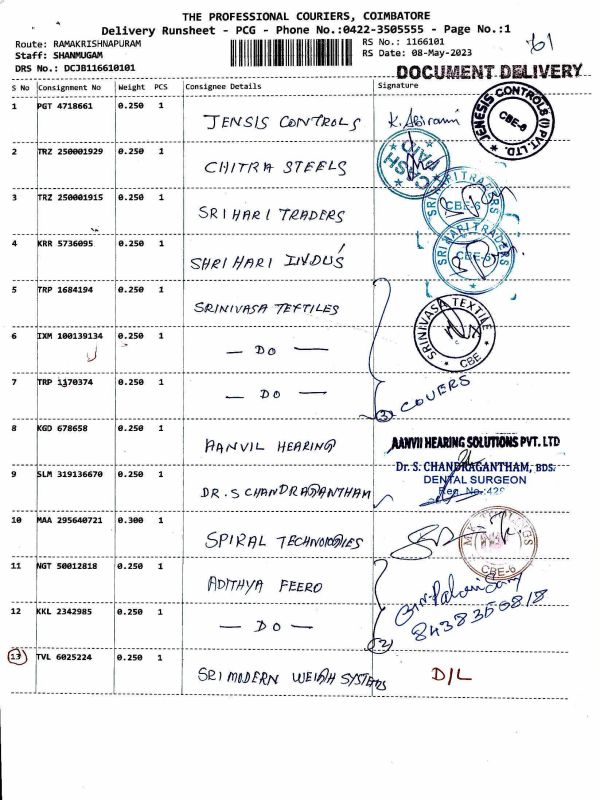 THE PROFESSIONAL COURIERS, COIMBATORE
Delivery Runsheet - PCG - Phone No.:0422-3505555 - Page No.:1
Route: RAMAKRISHNAPURAM
RS No.: 1166101
Staff: SHANMUGAM
RS Date: 08-May-2023
DRS No.: DCJB116610101
DOCUMENT DELIVERY
S No Consignment No Weight PCS Consignee Details Signature
1 PGT 4718661 0.250 1 JENSIS CONTROLS K. Abirami
JENESIS CONTROLS (I) PVT. LTD. CBE-6
2 TRZ 250001929 0.250 1 CHITRA STEELS
CASH PAID
3 TRZ 250001915 0.250 1 SRI HARI TRADERS
SRI HARI TRADERS CBE-6
4 KRR 5736095 0.250 1 SHRI HARI INDUS
SRI HARI TRADERS CBE-6
5 TRP 1684194 0.250 1 SRINIVASA TEXTILES
SRINIVASA TEXTILE CBE
6 IXM 100139134 0.250 1 — DO —
7 TRP 1170374 0.250 1 — DO —
3 COVERS
8 KGD 678658 0.250 1 AANVIL HEARING
AANVII HEARING SOLUTIONS PVT. LTD
9 SLM 319136670 0.250 1 DR. S CHANDRAGANTHAM
Dr. S. CHANDRAGANTHAM, BDS.
DENTAL SURGEON
Reg. No.:428
10 MAA 295640721 0.300 1 SPIRAL TECHNOLOGIES
CBE-6
11 NGT 50012818 0.250 1 ADITHYA FEERO
12 KKL 2342985 0.250 1 — DO —
2
8438350818
13 TVL 6025224 0.250 1 SRI MODERN WEIGH SYSTEMS D/L